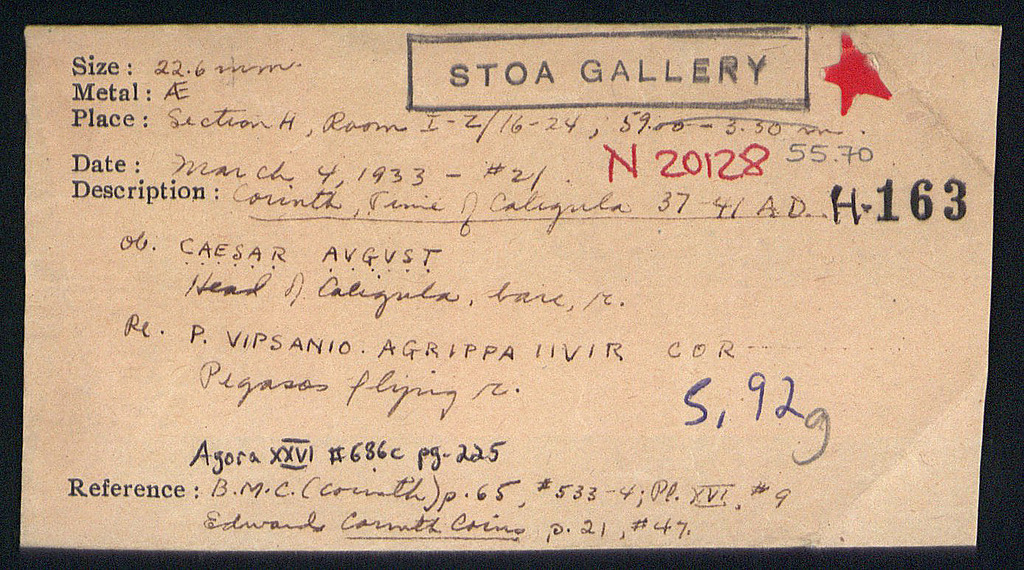 STOA GALLERY
Size: 22.6 mm.
Metal: Æ
Place: Section H, Room I-2/16-24; 59.00 - 3.50 m.
55.70
Date: March 4, 1933 - #21.
N 20128
Description: Corinth, Time of Caligula 37-41 A.D.
H-163
Ob. CAESAR AVGVST
Head of Caligula, bare, r.
Re. P. VIPSANIO. AGRIPPA IIVIR COR
Pegasos flying r.
5,92g
Agora XXVI #686c pg.225
Reference: B.M.C. (Corinth) p. 65, #533-4; Pl. XVI, #9
Edwards Corinth Coins, p. 21, #47.